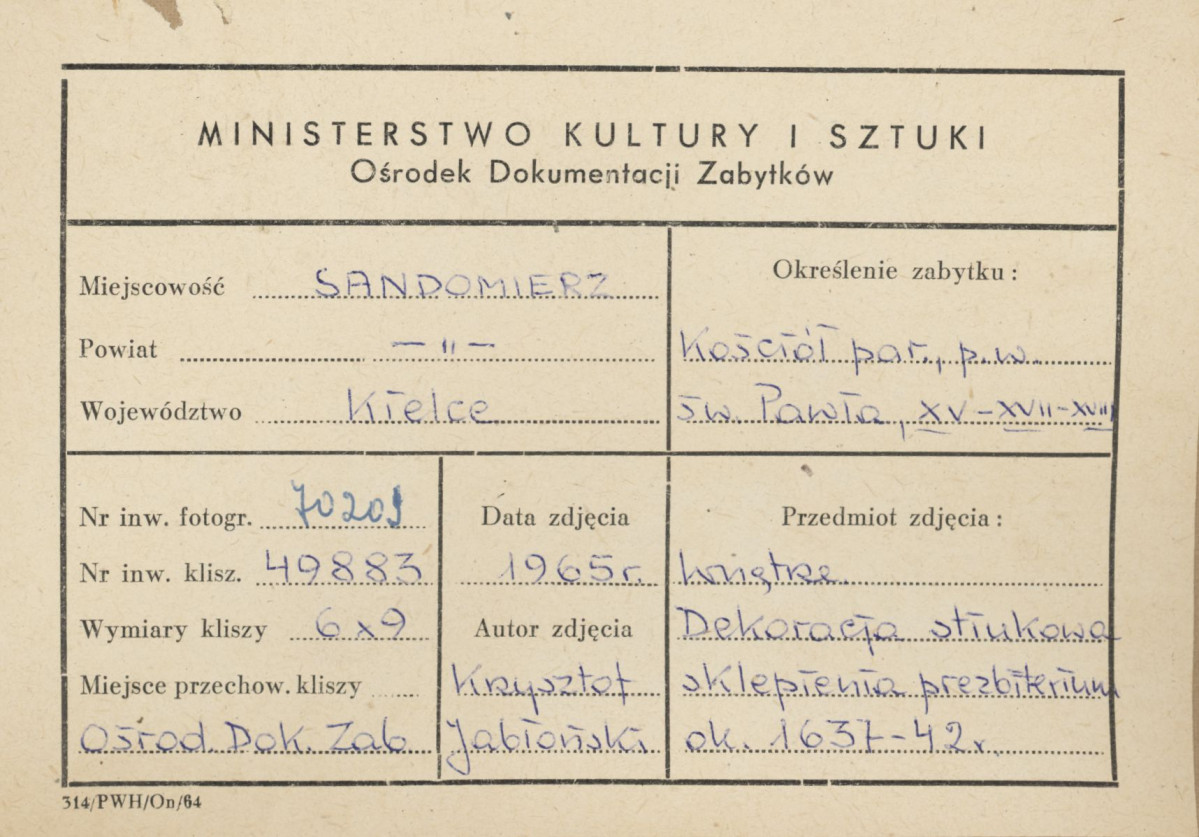 MINISTERSTWO KULTURY I SZTUKI
Ośrodek Dokumentacji Zabytków
Miejscowość SANDOMIERZ
Powiat — " —
Województwo Kielce
Określenie zabytku:
Kościół par., p.w.
św. Pawła, XV-XVII-XVIII
Nr inw. fotogr. 70209
Nr inw. klisz. 49883
Wymiary kliszy 6x9
Miejsce przechow. kliszy
Ośrod. Dok. Zab.
Data zdjęcia
1965 r.
Autor zdjęcia
Krzysztof
Jabłoński
Przedmiot zdjęcia:
Wnętrze.
Dekoracja stiukowa
sklepienia prezbiterium
ok. 1637-42 r.
314/PWH/On/64